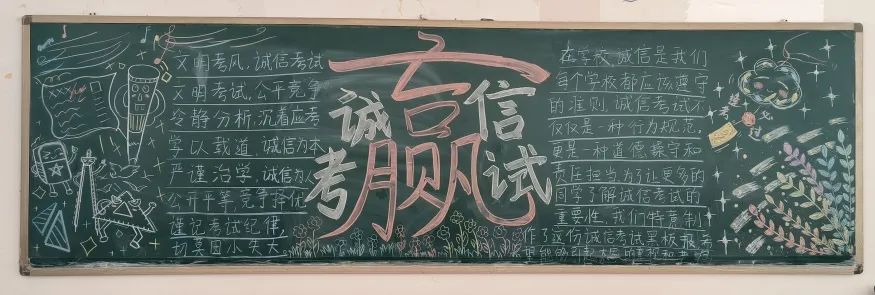 文明考风，诚信考试
文明考试，公平竞争
冷静分析，沉着应考
学以载道，诚信为本
严谨治学，诚信为人
公开平等竞争择优
谨记考试纪律，
切莫因小失大
诚信
赢
考试
在学校，诚信是我们
每个学校都应该遵守
的准则，诚信考试不
仅仅是一种行为规范，
更是一种道德操守和
责任担当，为了让更多的
同学了解诚信考试的
重要性，我们特意制
作了这份诚信考试黑板报，希
考
过